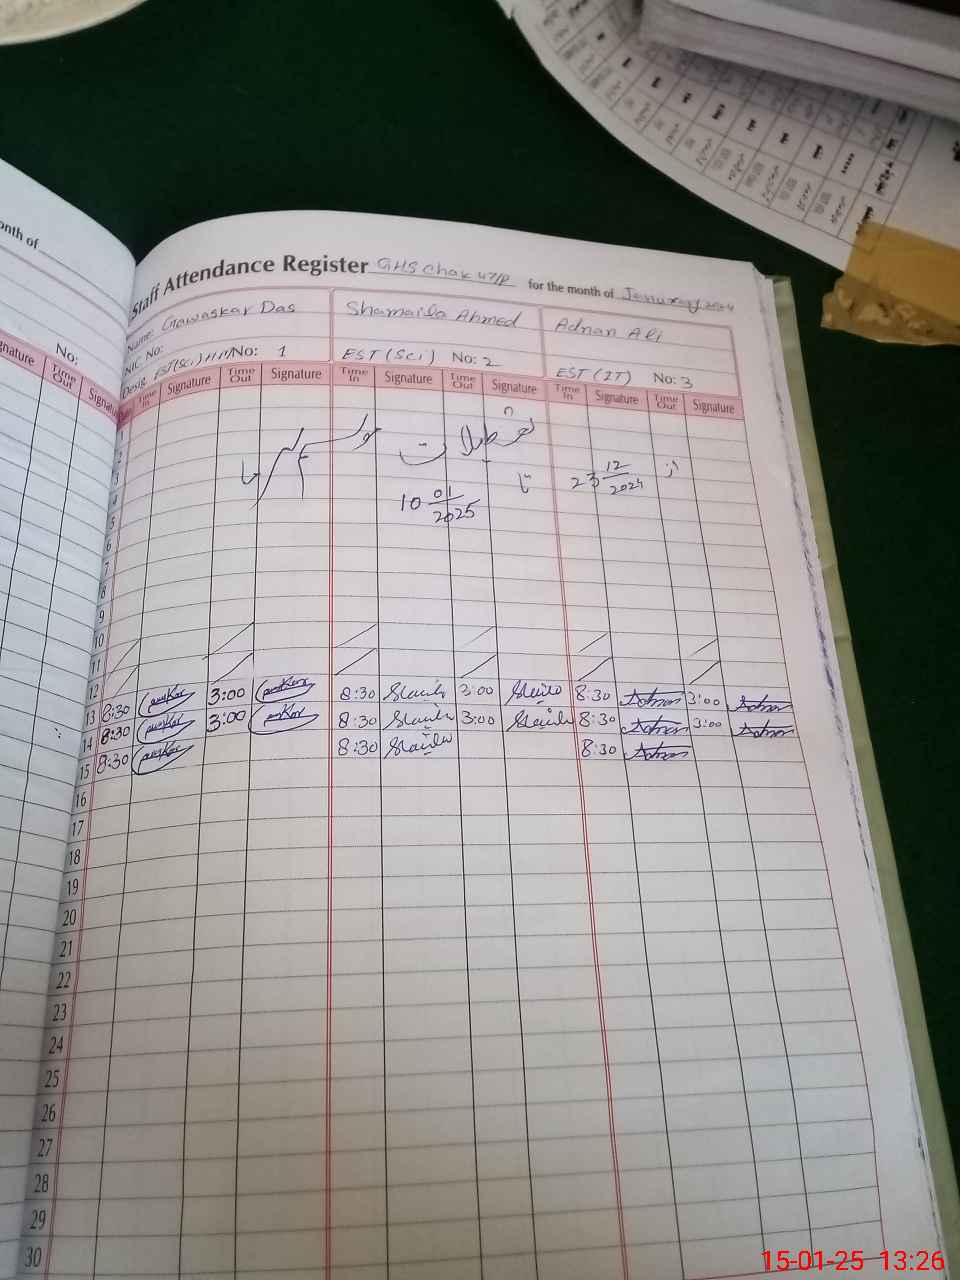 onth of
Staff Attendance Register GHS Chak 47/P for the month of January 2024
Name: Gawaskar Das Shamaila Ahmed Adnan Ali
NIC. No:
Desig. EST(Sci) H/M No: 1 EST (Sci) No: 2 EST (IT) No: 3
No:
gnature Time Out Signatu
Time In Signature Time Out Signature Time In Signature Time Out Signature Time In Signature Time Out Signature
1
2
تعطیلات موسم سرما
3
از 23 12/2024 تا 10 01/2025
4
5
6
7
8
9
10
11
12
13 8:30 3:00 8:30 3:00 8:30 Adnan 3:00 Adnan
14 8:30 3:00 8:30 3:00 8:30 Adnan 3:00 Adnan
15 8:30 8:30 8:30 Adnan
16
17
18
19
20
21
22
23
24
25
26
27
28
29
30
15-01-25 13:26